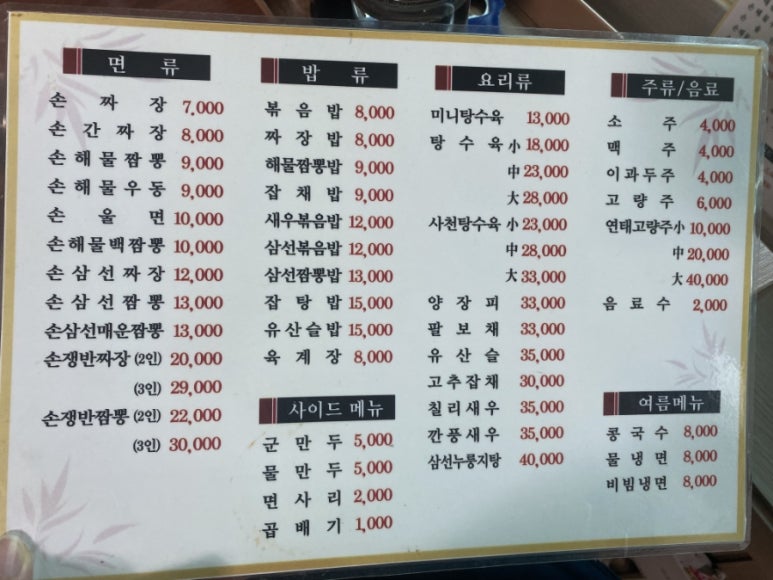 면 류
손 짜 장 7,000
손 간 짜 장 8,000
손 해 물 짬 뽕 9,000
손 해 물 우 동 9,000
손 울 면 10,000
손해물백짬뽕 10,000
손 삼 선 짜 장 12,000
손 삼 선 짬 뽕 13,000
손삼선매운짬뽕 13,000
손쟁반짜장 (2인) 20,000
(3인) 29,000
손쟁반짬뽕 (2인) 22,000
(3인) 30,000
밥 류
볶 음 밥 8,000
짜 장 밥 8,000
해물짬뽕밥 9,000
잡 채 밥 9,000
새우볶음밥 12,000
삼선볶음밥 12,000
삼선짬뽕밥 13,000
잡 탕 밥 15,000
유산슬밥 15,000
육 계 장 8,000
사이드 메뉴
군 만 두 5,000
물 만 두 5,000
면 사 리 2,000
곱 배 기 1,000
요리류
미니탕수육 13,000
탕 수 육 小 18,000
中 23,000
大 28,000
사천탕수육 小 23,000
中 28,000
大 33,000
양 장 피 33,000
팔 보 채 33,000
유 산 슬 35,000
고추잡채 30,000
칠리새우 35,000
깐풍새우 35,000
삼선누룽지탕 40,000
주류/음료
소 주 4,000
맥 주 4,000
이과두주 4,000
고 량 주 6,000
연태고량주 小 10,000
中 20,000
大 40,000
음 료 수 2,000
여름메뉴
콩 국 수 8,000
물 냉 면 8,000
비빔냉면 8,000